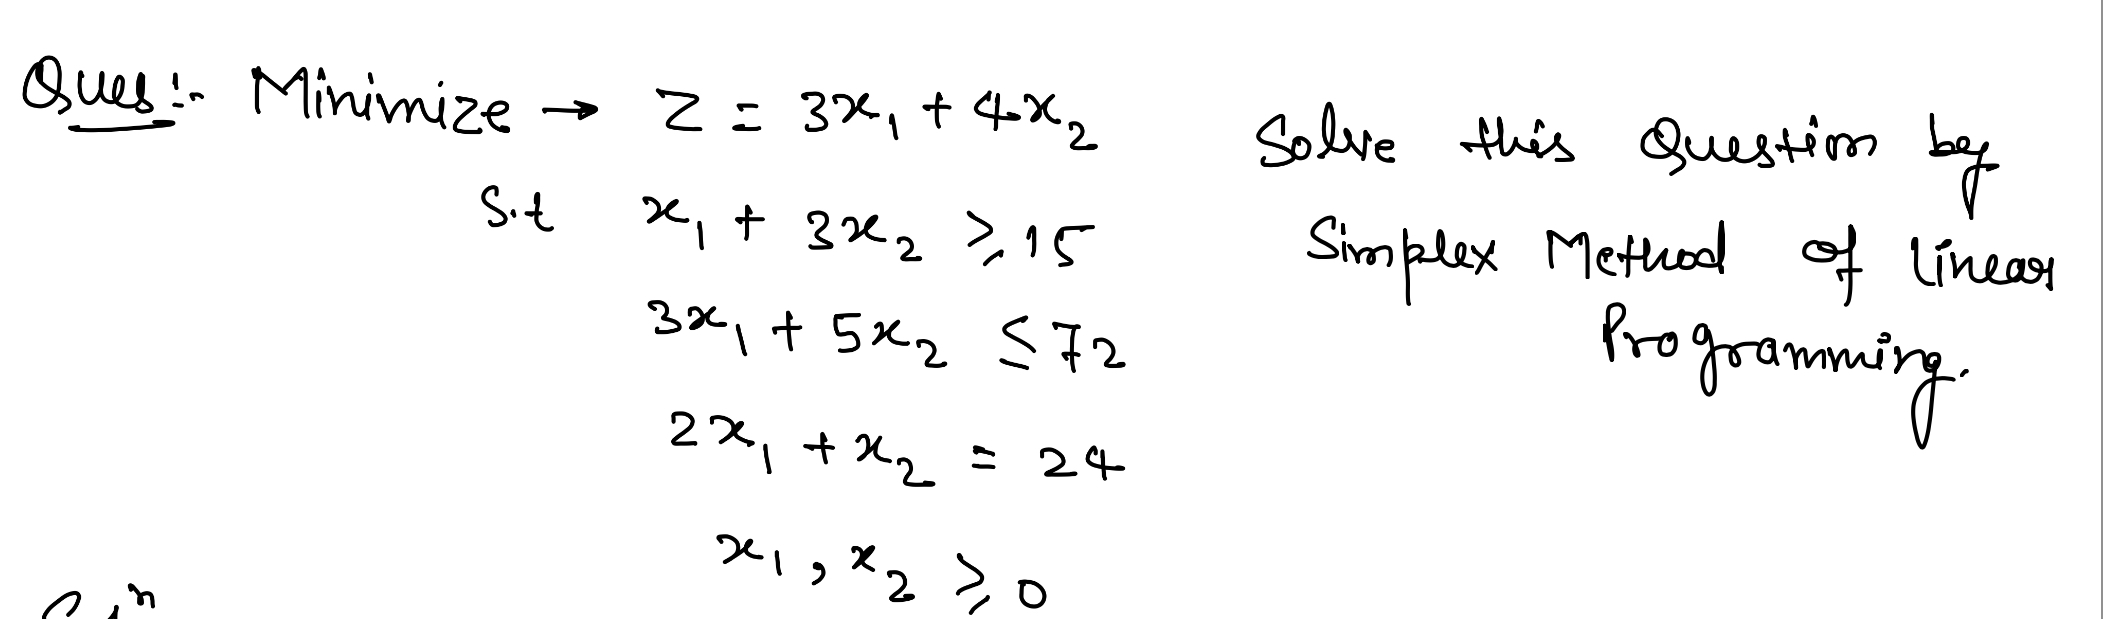 Ques:- Minimize → Z = 3x₁ + 4x₂
S.t x₁ + 3x₂ ≥ 15
3x₁ + 5x₂ ≤ 72
2x₁ + x₂ = 24
x₁, x₂ ≥ 0
Solve this Question by
Simplex Method of Linear
Programming.